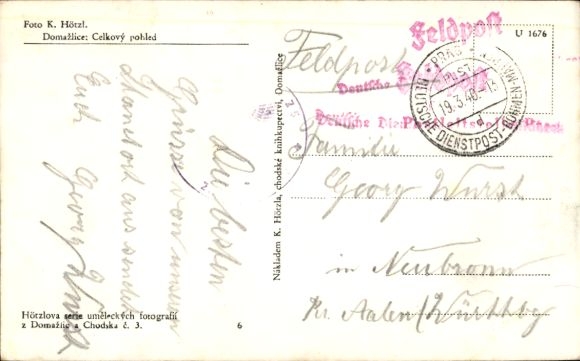 Foto K. Hötzl.
Domažlice: Celkový pohled
Die besten
Grüsse von unserem
Standort aus sendet
Euch
Georg Wurst
Hötzlova serie uměleckých fotografií
z Domažlic a Chodska č. 3.
6
Nákladem K. Hötzla, chodské knihkupectví, Domažlice
U 1676
Feldpost
Feldpost
Deutsche
Deutsche
19.3.40.-13
DEUTSCHE DIENSTPOST-BÖHMEN-MÄHREN
d
Familie
Georg Wurst
in Neubronn
Kr. Aalen/Württbg